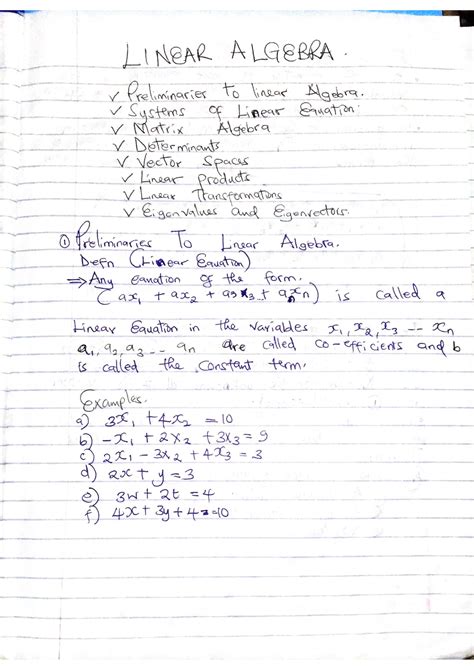 LINEAR ALGEBRA.
✓ Preliminaries to linear Algebra.
✓ Systems of Linear Equation.
✓ Matrix Algebra
✓ Determinants
✓ Vector Spaces
✓ Linear products
✓ Linear Transformations
✓ Eigenvalues and Eigenvectors.
① Preliminaries To Linear Algebra.
Defn (Linear Equation)
⇒ Any equation of the form.
(ax₁ + ax₂ + a₃x₃ + aₙxₙ) is called a
Linear Equation in the variables x₁, x₂, x₃ -- xₙ
a₁, a₂, a₃ -- aₙ are called co-efficients and b
is called the constant term.
Examples.
a) 3x₁ + 4x₂ = 10
b) -x₁ + 2x₂ + 3x₃ = 9
c) 2x₁ - 3x₂ + 4x₃ = 3
d) 2x + y = 3
e) 3w + 2t = 4
f) 4x + 3y + 4z = 10